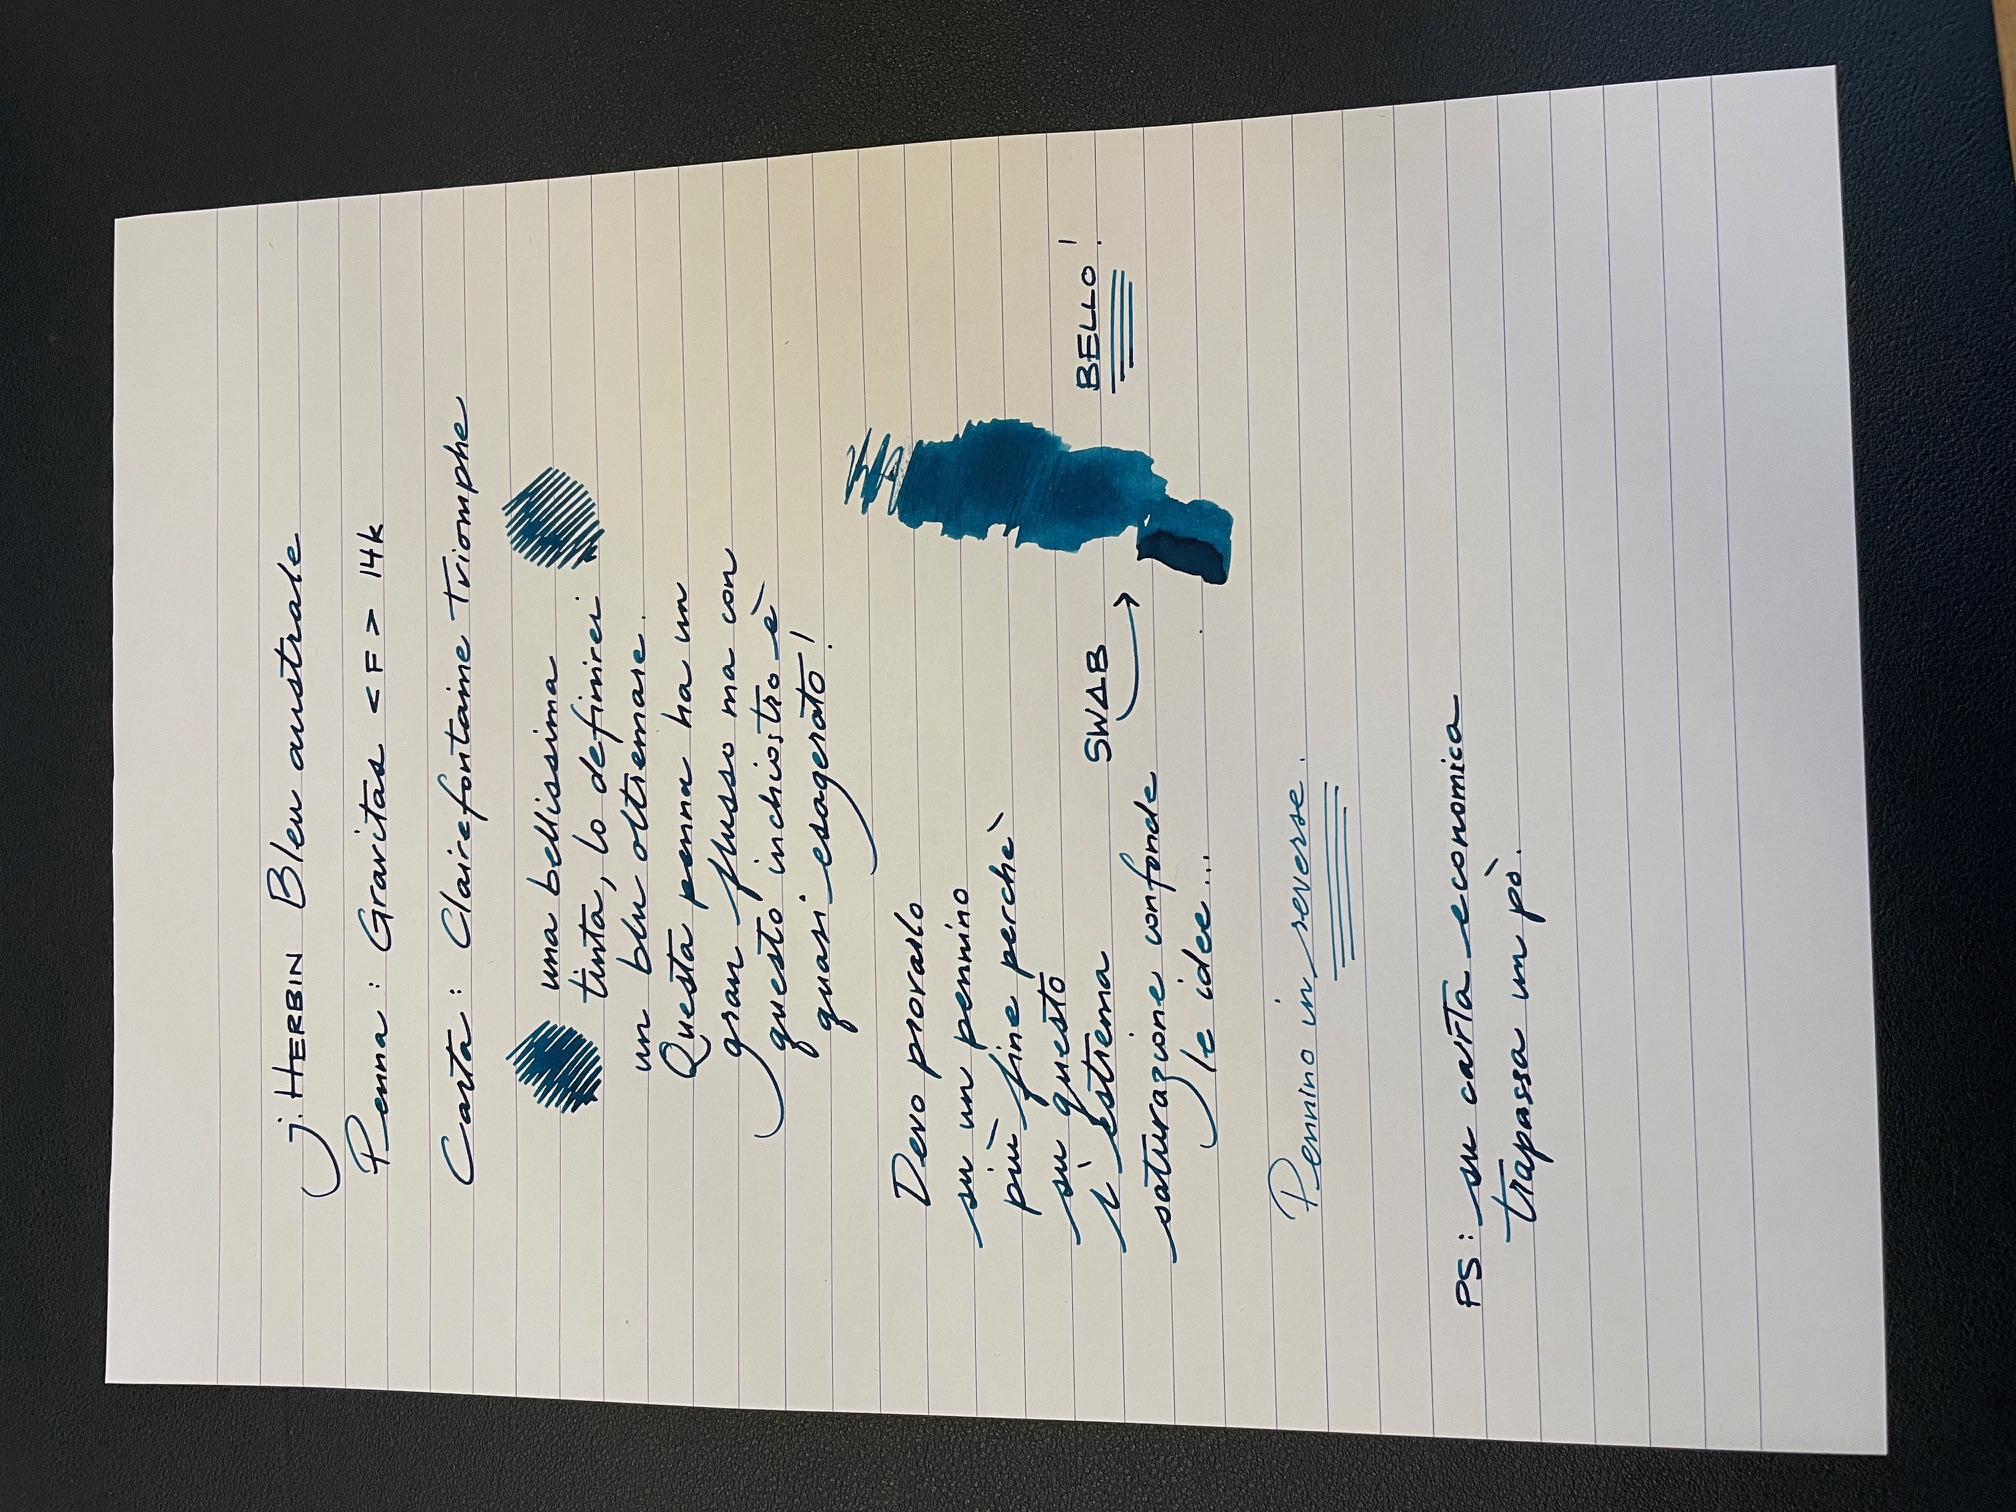 J. HERBIN Bleu australe
Penna : Gravitas <F> 14k
Carta : Clairefontaine Triomphe
una bellissima
tinta, lo definirei
un blu oltremare.
Questa penna ha un
gran flusso ma con
questo inchiostro è
quasi esagerato!
Devo provarlo
su un pennino
più fine perchè
su questo
l'estrema
saturazione confonde
le idee...
SWAB
BELLO!
Pennino in reverse.
PS: su carta economica
trapassa un pò.